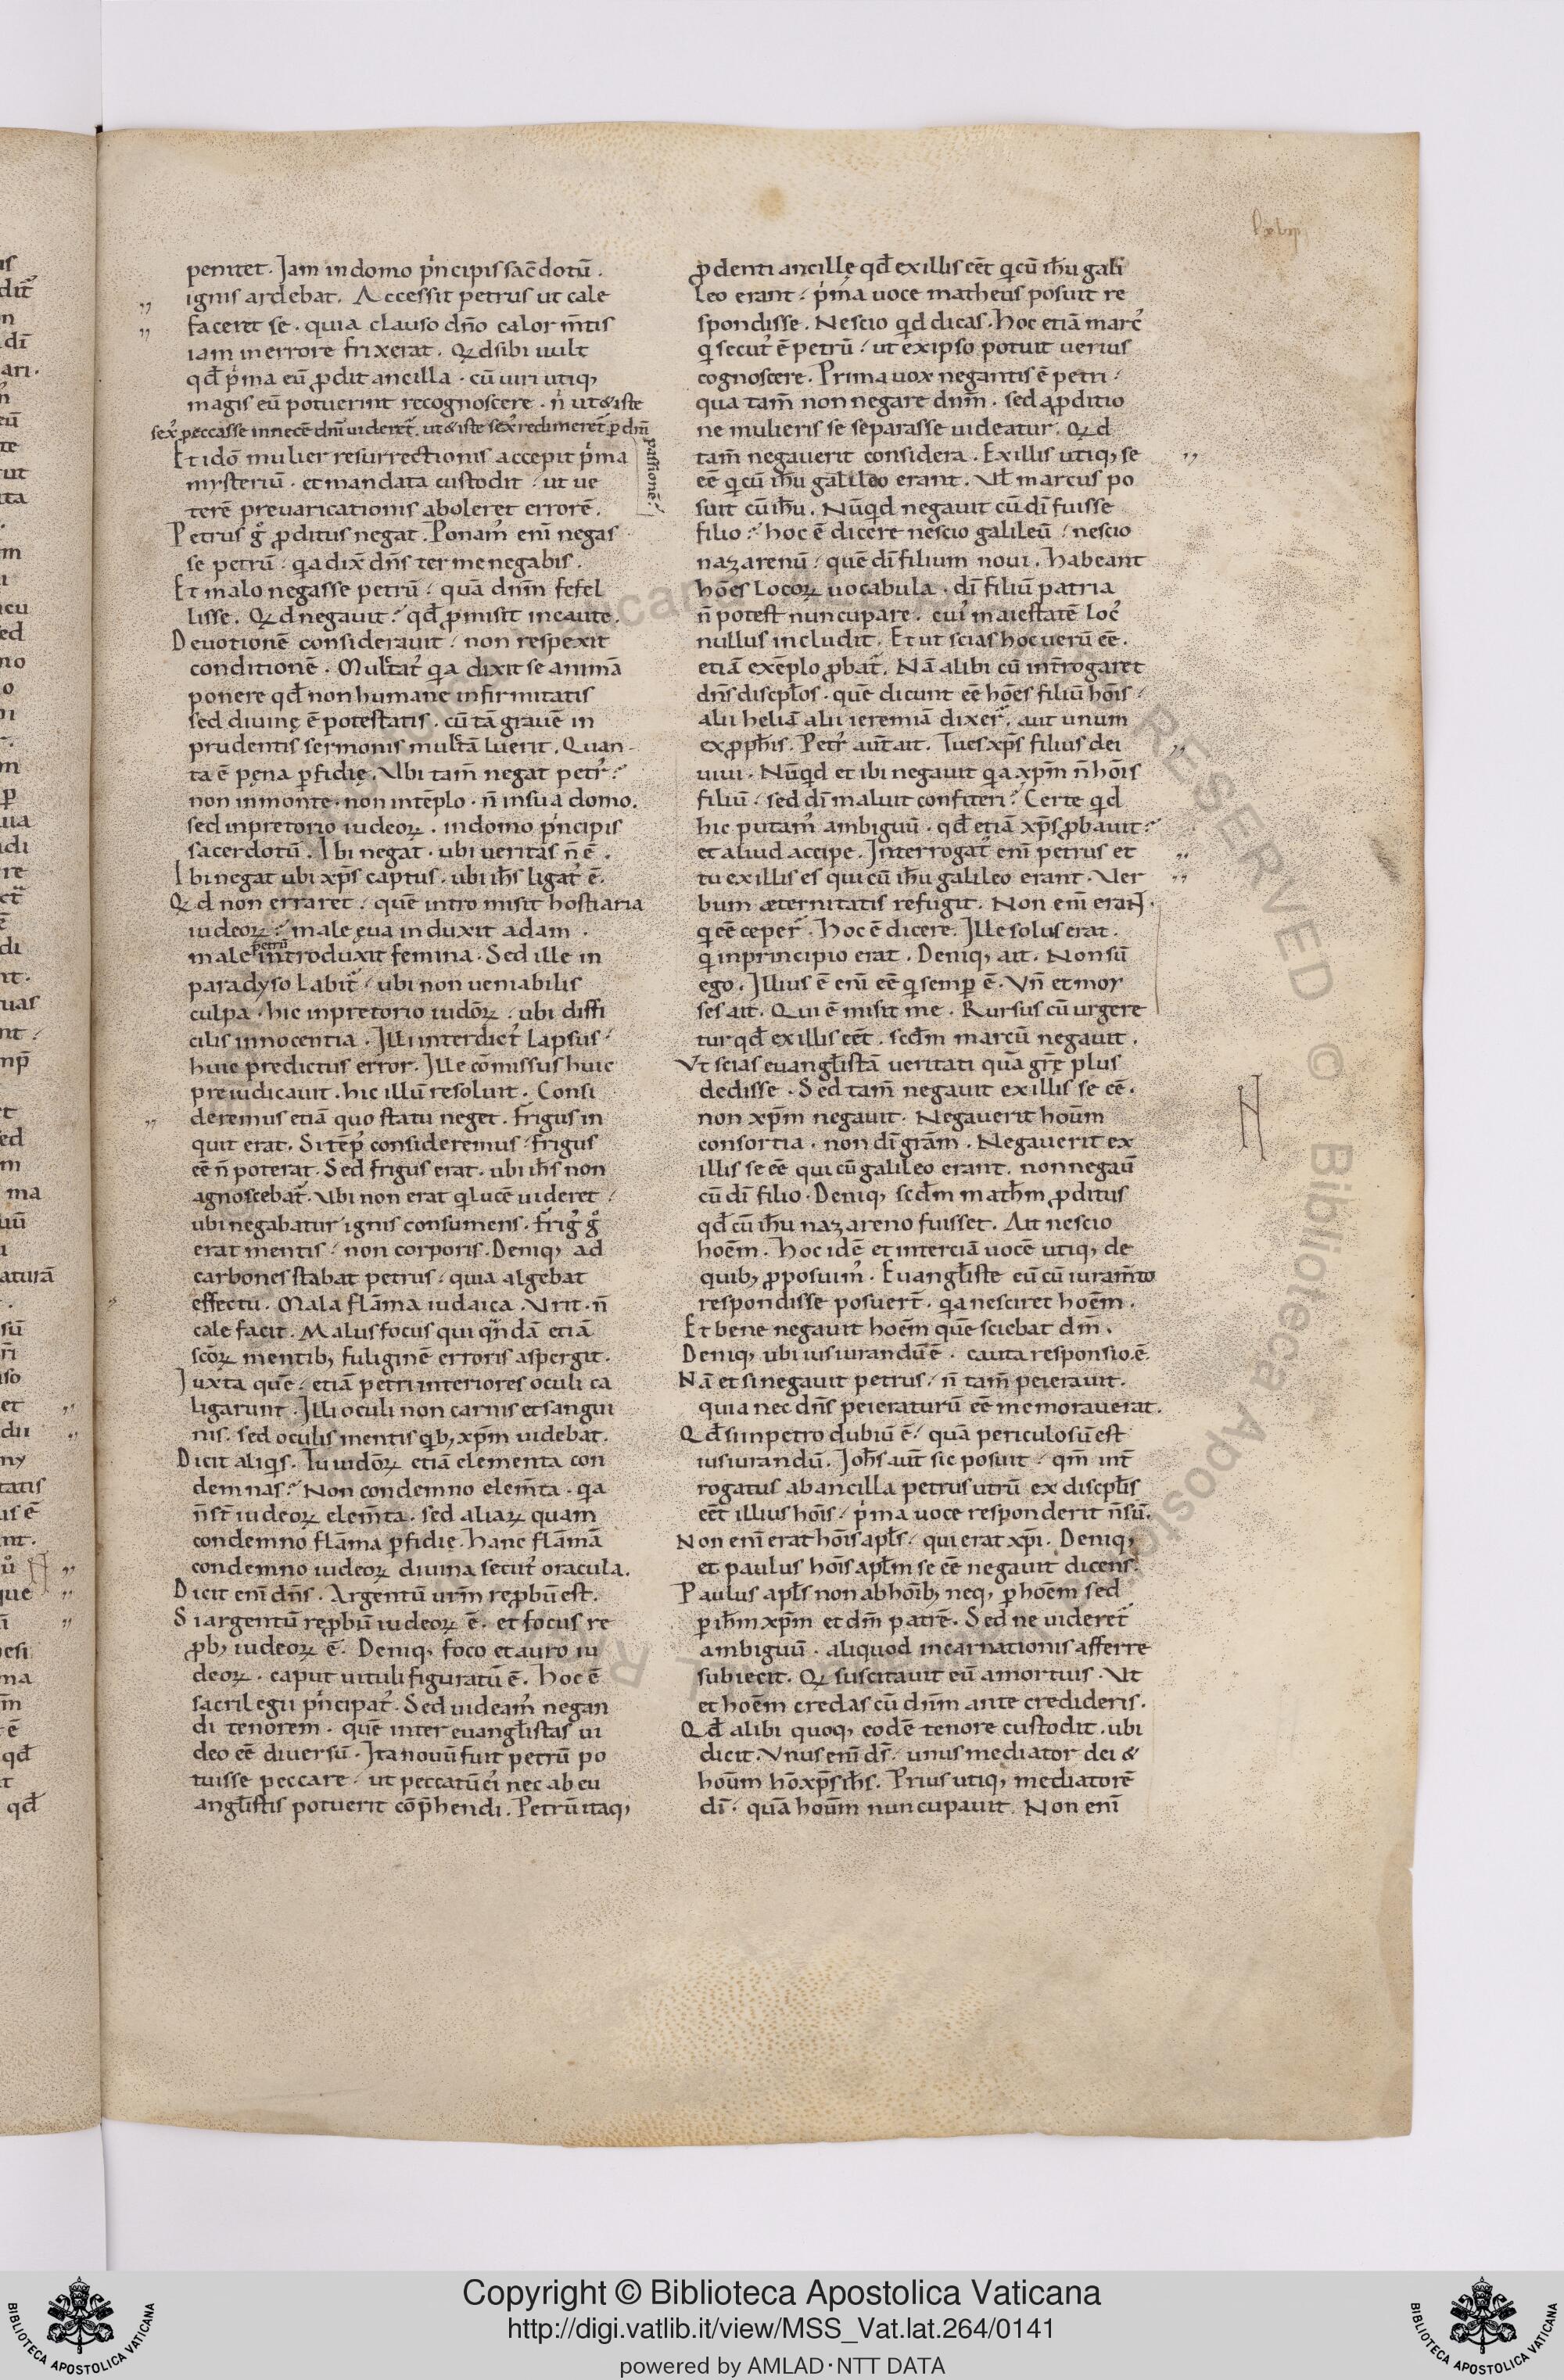 lxvıı
penitet. Iam in domo p̍ncipis sac̄dotū.
ignis ardebat. Accessit petrus ut cale
faceret se. quia clauso dn̄o calor m̄tis
iam in errore frixerat. Qd sibi uult
qđ p̍ma eū ꝓdit ancilla. cū uiri utiq;
magis eū potuerint recognoscere. n̍ ut & iste
sex᷒ peccasse in necē dn̄i uideret᷒. ut & iste sex᷒ redimeret᷒ ꝑ dn̄i
passionē.
Et idō mulier resurrectionis accepit p̍ma
mysteriū. et mandata custodit. ut ue
terē preuaricationis aboleret errorē.
Petrus g̊ ꝓditus negat. Ponam᷒ eni negas
se petrū. qa dix̄ dn̄s ter me negabis.
Et malo negasse petrū. quā dnm̄ fefel
lisse. Qd negauit? qđ ꝓmisit incaute.
Deuotionē considerauit. non respexit
conditionē. Multat᷒ qa dixit se animā
ponere qđ non humane infirmitatis
sed diuinę ē potestatis. cū tā grauē in
prudentis sermonis multā luerit. Quan
ta ē pęna ꝑfidię. Vbi tam̄ negat petr᷒?
non in monte. non in tēplo. n̄ in sua domo.
sed in pretorio iudeoꝝ. in domo p̍ncipis
sacerdotū. Ibi negat. ubi ueritas n̄ ē.
Ibi negat ubi xp̄s captus. ubi ih̄s ligat᷒ ē.
Qd non erraret. quē intro misit hostiaria
iudeoꝝ? male ęua induxit adam.
male petrū introduxit femina. Sed ille in
paradyso labit᷒. ubi non ueniabilis
culpa. hic in pretorio iudōꝝ. ubi diffi
cilis innocentia. Illi interdict᷒ lapsus.
huic predictus error. Ille cōmissus huic
preiudicauit. hic illū resoluit. Consi
deremus etiā quo statu neget. frigus in
quit erat. Si tēp᷒ consideremus. frigus
eē n̄ poterat. Sed frigus erat. ubi ih̄s non
agnoscebat᷒. Vbi non erat q̍ lucē uideret.
ubi negabatur ignis consumens. frig᷒ g̊
erat mentis. non corporis. Deniq; ad
carbones stabat petrus. quia algebat
effectu. Mala flāma iudaica. Vrit. n̄
cale facit. Malus focus qui qn̄dā etiā
scōꝝ mentib; fuliginē erroris aspergit.
Iuxta quē. etiā petri interiores oculi ca
ligarunt. Illi oculi non carnis et sangui
nis. sed oculis mentis qib; xp̄m uidebat.
Dicit aliqis. Tu iudōꝝ etiā elementa con
demnas? Non condemno elem̄ta. qa
n̄ st̄ iudeoꝝ elem̄ta. sed aliaꝝ quam
condemno flāma ꝑfidię. hanc flāmā
condemno iudeoꝝ diuina secut᷒ oracula.
Dicit eni dn̄s. Argentū urm̄ reꝓbū est.
Si argentū reꝓbū iudeoꝝ ē. et focus re
ꝓb; iudeoꝝ ē. Deniq; foco et auro iu
deoꝝ. caput uituli figuratū ē. hoc ē
sacrilegii p̍ncipat᷒. Sed uideam᷒ negan
di tenorem. quē inter euangl̄istas ui
deo eē diuersū. Ita nouū fuit petrū po
tuisse peccare. ut peccatū ei᷒ nec ab eu
angl̄istis potuerit cōp̄hendi. Petrū itaq;
ꝓdenti ancillę qđ ex illis eēt qi cū ih̄u gali
leo erant. p̍ma uoce matheus posuit re
spondisse. Nescio qid dicas. hoc etiā marc᷒
qi secut᷒ ē petrū. ut ex ipso potuit uerius
cognoscere. Prima uox negantis ē petri.
qua tam̄ non negare dnm̄. sed a ꝓditio
ne mulieris se separasse uideatur. Qd
tam̄ negauerit considera. Ex illis utiq; se
eē qi cū ih̄u galileo erant. Vl̄ marcus po
suit cū ih̄u. Nūqid negauit cū dī fuisse
filio? hoc ē dicere nescio galileū. nescio
nazarenū. quē dī filium noui. habeant
hōes locoꝝ uocabula. dī filiū patria
n̄ potest nuncupare. cui᷒ maiestatē loc᷒
nullus includit. Et ut scias hoc uerū eē.
etiā exēplo ꝓbat᷒. Nā alibi cū int̄rogaret
dn̄s discipl̄os. quē dicunt eē hōes filiū hōis.
alii heliā alii ieremiā dixer᷒. aut unum
ex ꝓph̄is. Petr᷒ aut̄ ait. Tu es xp̄s filius dei
uiui. Nūqid et ibi negauit qa xp̄m n̄ hōis
filiū. sed dī maluit confiteri? Certe qid
hic putam᷒ ambiguū. qđ etiā xp̄s ꝓbauit?
et aliud accipe. Interrogat᷒ eni petrus et
tu ex illis es qui cū ih̄u galileo erant. Ver
bum æternitatis refugit. Non eni erant.
qi eē ceper᷒. hoc ē dicere. Ille solus erat.
qi in principio erat. Deniq; ait. Non sū
ego. Illius ē eni eē qi semꝑ ē. Vn̄ et moy
ses ait. Qui ē misit me. Rursus cū urgere
tur qđ ex illis eēt. scđm marcū negauit.
Vt scias euangl̄istā ueritati quā grę̄ plus
dedisse. Sed tam̄ negauit ex illis se eē.
non xp̄m negauit. Negauerit hoūm
consortia. non dī gram̄. Negauerit ex
illis se eē qui cū galileo erant. non negaū
cū dī filio. Deniq; scđm math̄m ꝓditus
qđ cū ih̄u nazareno fuisset. Ait nescio
hoēm. hoc idē et in terciā uocē utiq; de
quib; ꝓposuim᷒. Euangl̄istę eū cū iuram̄to
respondisse posuert̄. qa nesciret hoēm.
Et bene negauit hoēm quē sciebat dm̄.
Deniq; ubi iusiurandū ē. cauta responsio ē.
Nā et si negauit petrus. n̄ tam̄ peierauit.
quia nec dn̄s peieraturū eē memorauerat.
Qđ si in petro dubiū ē. quā periculosū est
iusiurandū. Ioh̄s aut̄ sic posuit. qm̄ int̄
rogatus ab ancilla petrus utrū ex discipl̄is
eēt illius hōis. p̍ma uoce responderit n̄ sū.
Non eni erat hōis apl̄s. qui erat xp̄i. Deniq;
et paulus hōis apl̄m se eē negauit dicens.
Paulus apl̄s non ab hōib; neq; ꝑ hoēm sed
ꝑ ih̄m xp̄m et dm̄ patrē. Sed ne uideret᷒
ambiguū. aliquod incarnationis afferre
subiecit. Qi suscitauit eū a mortuis. Vt
et hoēm credas cū dnm̄ ante credideris.
Qđ alibi quoq; eodē tenore custodit. ubi
dicit. Vnus eni ds̄. unus mediator dei &
hoūm hō xp̄s ih̄s. Prius utiq; mediatorē
dī. quā hoūm nuncupauit. Non eni
Copyright © Biblioteca Apostolica Vaticana
http://digi.vatlib.it/view/MSS_Vat.lat.264/0141
powered by AMLAD·NTT DATA